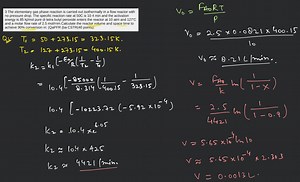 3.The elementary gas phase reaction is carried out isothermally in a flow reactor with
no pressure drop. The specific reaction rate at 50C is 10.4 min and the activation
energy is 85 kj/mol pure di-tetra-butyl peroxide enters the reactor at 10 atm and 127C
and a molar flow rate of 2.5 mol/min. Calculate the reactor volume and space time to
achieve 90% conversion in:
T₁ = 50 + 273.15 = 323.15 K.
T₂ = 127 + 273.15 = 400.15 K.
k₂ = k₁ [ -E/R (1/T₂ - 1/T₁) ]
10.4 [ -85000/8.314 (1/400.15 - 1/323.15) ]
10.4 [ -10223.72 (-5.92 × 10⁻⁴) ]
k₂ = 10.4 × e^6.05
k₂ ≈ 10.4 × 425
k₂ ≈ 4421 /min.
V₀ = F_A0 RT / P
V₀ = 2.5 × 0.0821 × 400.15 / 10
V₀ ≈ 8.21 L/min.
V = F_A0 / k ln (1 / 1-X)
= 2.5 / 4421 ln (1 / 1-0.9)
V ≈ 5.65 × 10⁻⁴ ln 10
V ≈ 5.65 × 10⁻⁴ × 2.303
V ≈ 0.0013 L.